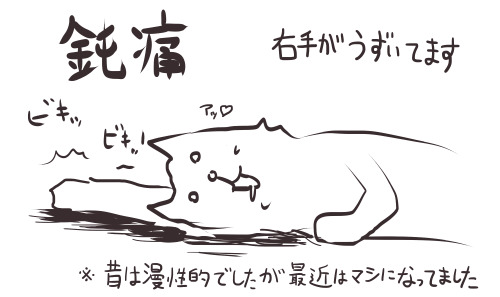 鈍痛
右手がうずいてます
ビキッ
ビキッ
アッ♡
※ 昔は漫性的でしたが最近はマシになってました